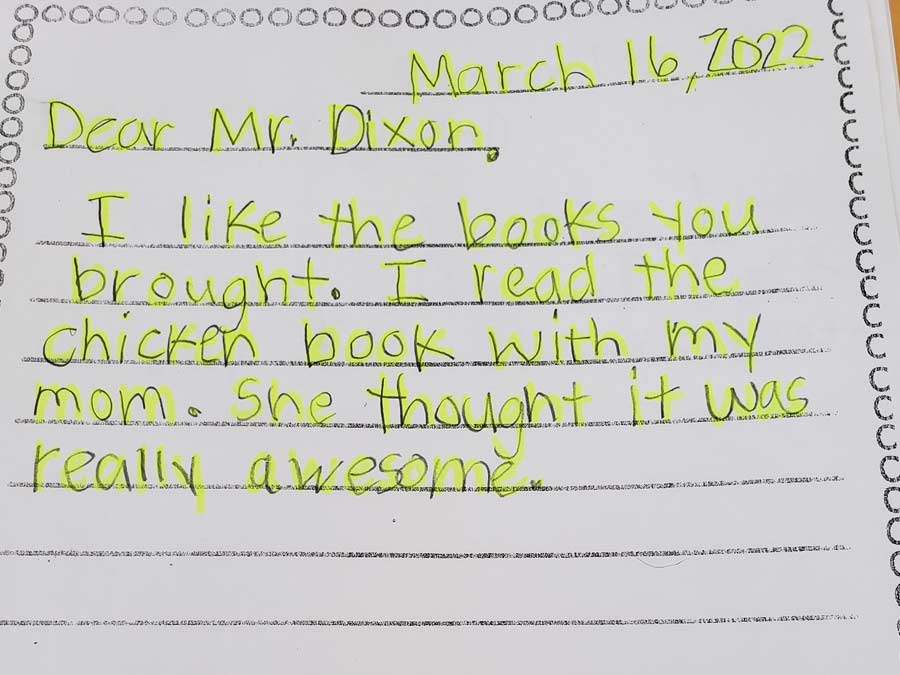 March 16, 2022
Dear Mr. Dixon,
I like the books you
brought. I read the
chicken book with my
mom. She thought it was
really awesome.